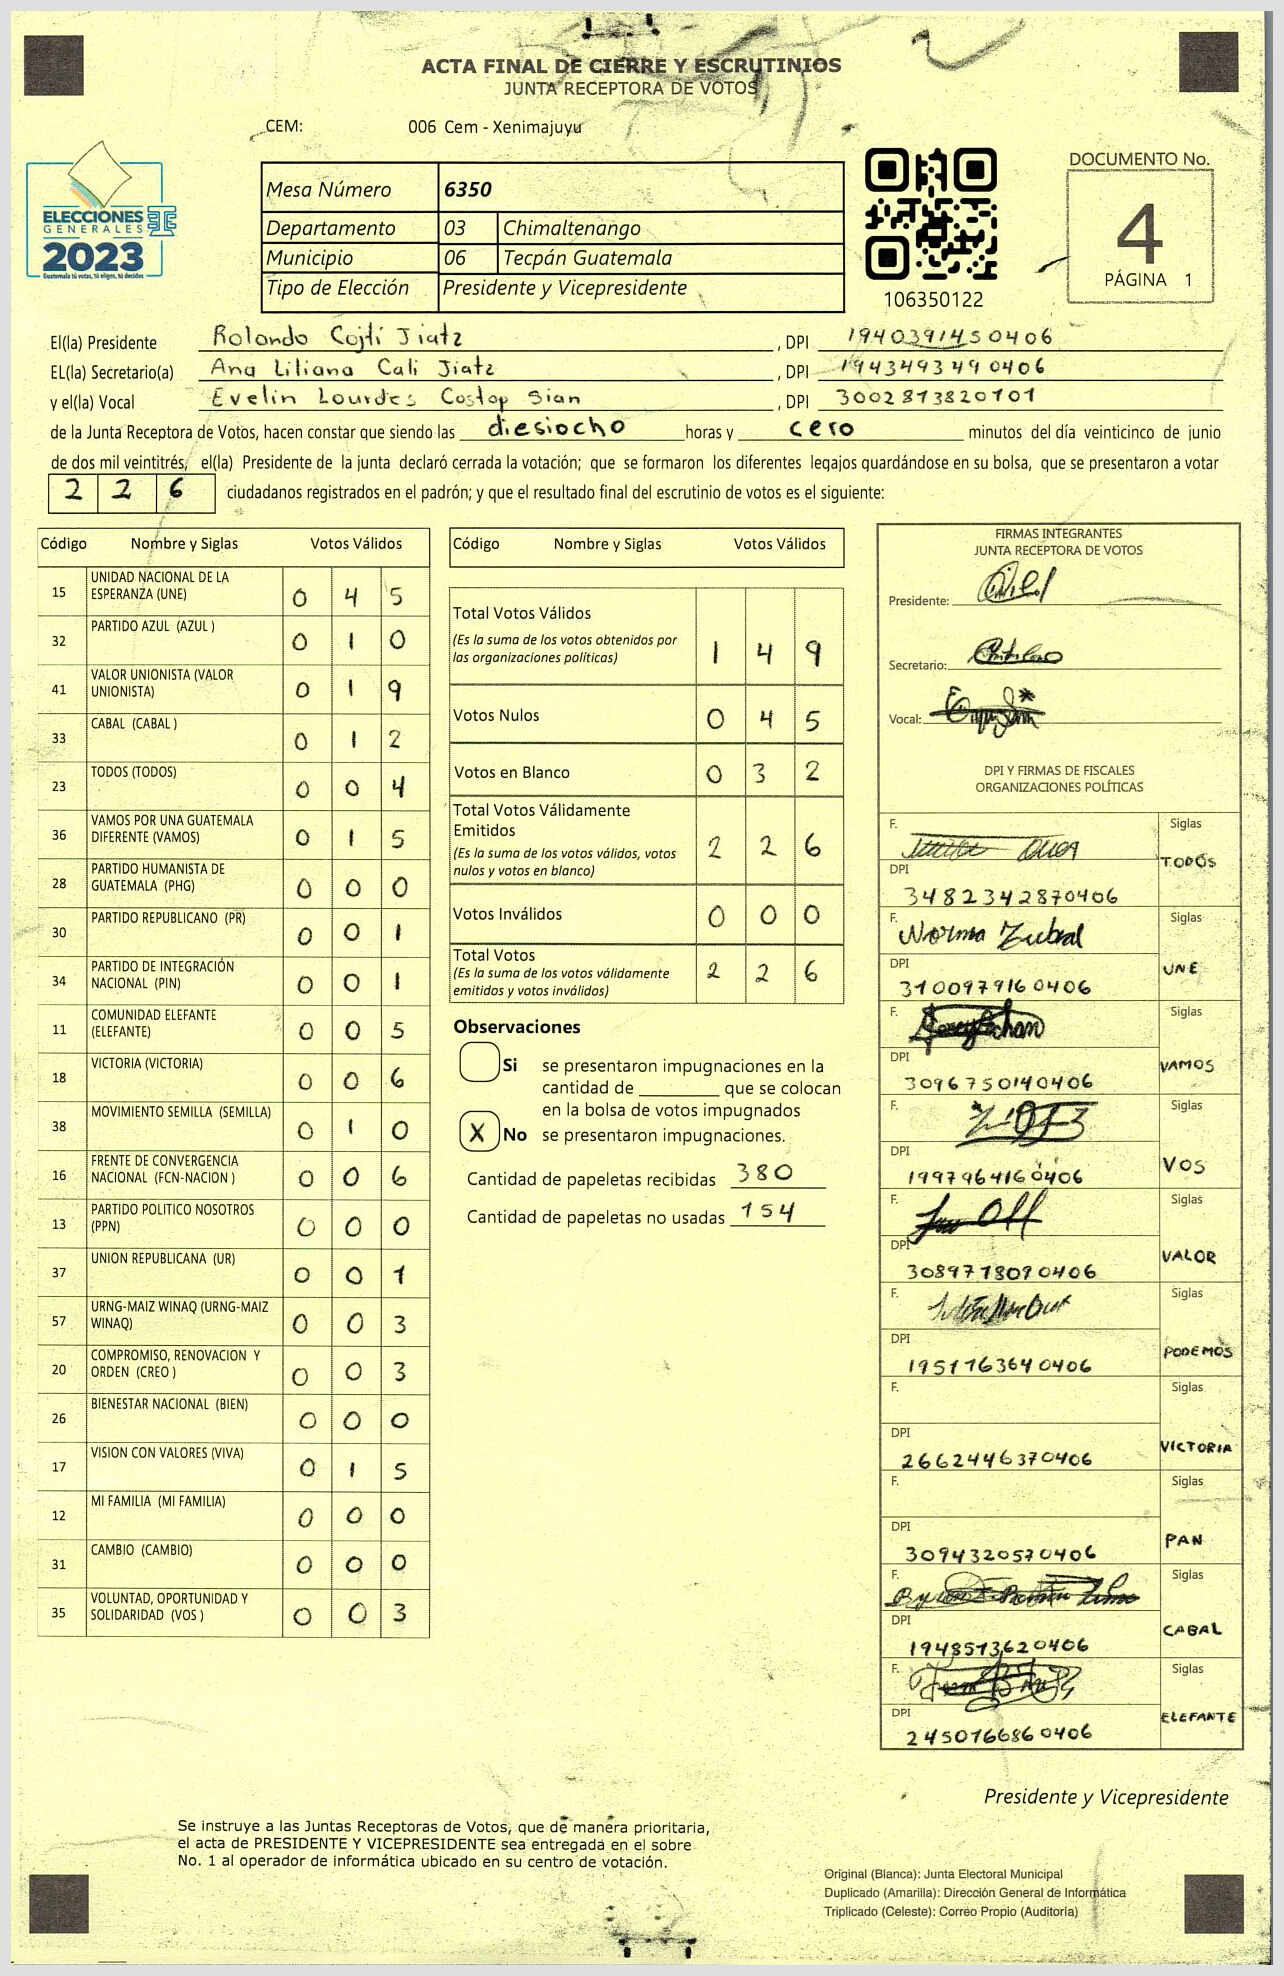 ACTA FINAL DE CIERRE Y ESCRUTINIOS
JUNTA RECEPTORA DE VOTOS
CEM: 006 Cem - Xenimajuyu
ELECCIONES
GENERALES
2023
Guatemala tú votas, tú eliges, tú decides
Mesa Número 6350
Departamento 03 Chimaltenango
Municipio 06 Tecpán Guatemala
Tipo de Elección Presidente y Vicepresidente
106350122
DOCUMENTO No.
4
PÁGINA 1
El(la) Presidente Rolando Cojtí Jiatz , DPI 1940391450406
EL(la) Secretario(a) Ana Liliana Cali Jiatz , DPI 1943493490406
y el(la) Vocal Evelin Lourdes Costop Sian , DPI 3002813820101
de la Junta Receptora de Votos, hacen constar que siendo las diesiocho horas y cero minutos del día veinticinco de junio
de dos mil veintitrés, el(la) Presidente de la junta declaró cerrada la votación; que se formaron los diferentes legajos guardándose en su bolsa, que se presentaron a votar
2 2 6 ciudadanos registrados en el padrón; y que el resultado final del escrutinio de votos es el siguiente:
Código Nombre y Siglas Votos Válidos
15 UNIDAD NACIONAL DE LA ESPERANZA (UNE) 0 4 5
32 PARTIDO AZUL (AZUL ) 0 1 0
41 VALOR UNIONISTA (VALOR UNIONISTA) 0 1 9
33 CABAL (CABAL ) 0 1 2
23 TODOS (TODOS) 0 0 4
36 VAMOS POR UNA GUATEMALA DIFERENTE (VAMOS) 0 1 5
28 PARTIDO HUMANISTA DE GUATEMALA (PHG) 0 0 0
30 PARTIDO REPUBLICANO (PR) 0 0 1
34 PARTIDO DE INTEGRACIÓN NACIONAL (PIN) 0 0 1
11 COMUNIDAD ELEFANTE (ELEFANTE) 0 0 5
18 VICTORIA (VICTORIA) 0 0 6
38 MOVIMIENTO SEMILLA (SEMILLA) 0 1 0
16 FRENTE DE CONVERGENCIA NACIONAL (FCN-NACION ) 0 0 6
13 PARTIDO POLITICO NOSOTROS (PPN) 0 0 0
37 UNION REPUBLICANA (UR) 0 0 1
57 URNG-MAIZ WINAQ (URNG-MAIZ WINAQ) 0 0 3
20 COMPROMISO, RENOVACION Y ORDEN (CREO ) 0 0 3
26 BIENESTAR NACIONAL (BIEN) 0 0 0
17 VISION CON VALORES (VIVA) 0 1 5
12 MI FAMILIA (MI FAMILIA) 0 0 0
31 CAMBIO (CAMBIO) 0 0 0
35 VOLUNTAD, OPORTUNIDAD Y SOLIDARIDAD (VOS ) 0 0 3
Código Nombre y Siglas Votos Válidos
Total Votos Válidos 1 4 9
(Es la suma de los votos obtenidos por
las organizaciones políticas)
Votos Nulos 0 4 5
Votos en Blanco 0 3 2
Total Votos Válidamente
Emitidos 2 2 6
(Es la suma de los votos válidos, votos
nulos y votos en blanco)
Votos Inválidos 0 0 0
Total Votos 2 2 6
(Es la suma de los votos válidamente
emitidos y votos inválidos)
Observaciones
Si se presentaron impugnaciones en la
cantidad de ________ que se colocan
en la bolsa de votos impugnados
X No se presentaron impugnaciones.
Cantidad de papeletas recibidas 380
Cantidad de papeletas no usadas 154
FIRMAS INTEGRANTES
JUNTA RECEPTORA DE VOTOS
Presidente:
Secretario:
Vocal:
DPI Y FIRMAS DE FISCALES
ORGANIZACIONES POLÍTICAS
F. Siglas
TODOS
DPI
3482342870406
F. Norma Siglas
UNE
DPI
3100979160406
F. Siglas
VAMOS
DPI
3096750140406
F. Siglas
VOS
DPI
1997964160406
F. Siglas
VALOR
DPI
3089778090406
F. Siglas
PODEMOS
DPI
1951763640406
F. Siglas
VICTORIA
DPI
2662446370406
F. Siglas
PAN
DPI
3094320570406
F. Siglas
CABAL
DPI
1948573620406
F. Siglas
ELEFANTE
DPI
2450766860406
Presidente y Vicepresidente
Se instruye a las Juntas Receptoras de Votos, que de manera prioritaria,
el acta de PRESIDENTE Y VICEPRESIDENTE sea entregada en el sobre
No. 1 al operador de informática ubicado en su centro de votación.
Original (Blanca): Junta Electoral Municipal
Duplicado (Amarilla): Dirección General de Informática
Triplicado (Celeste): Correo Propio (Auditoría)